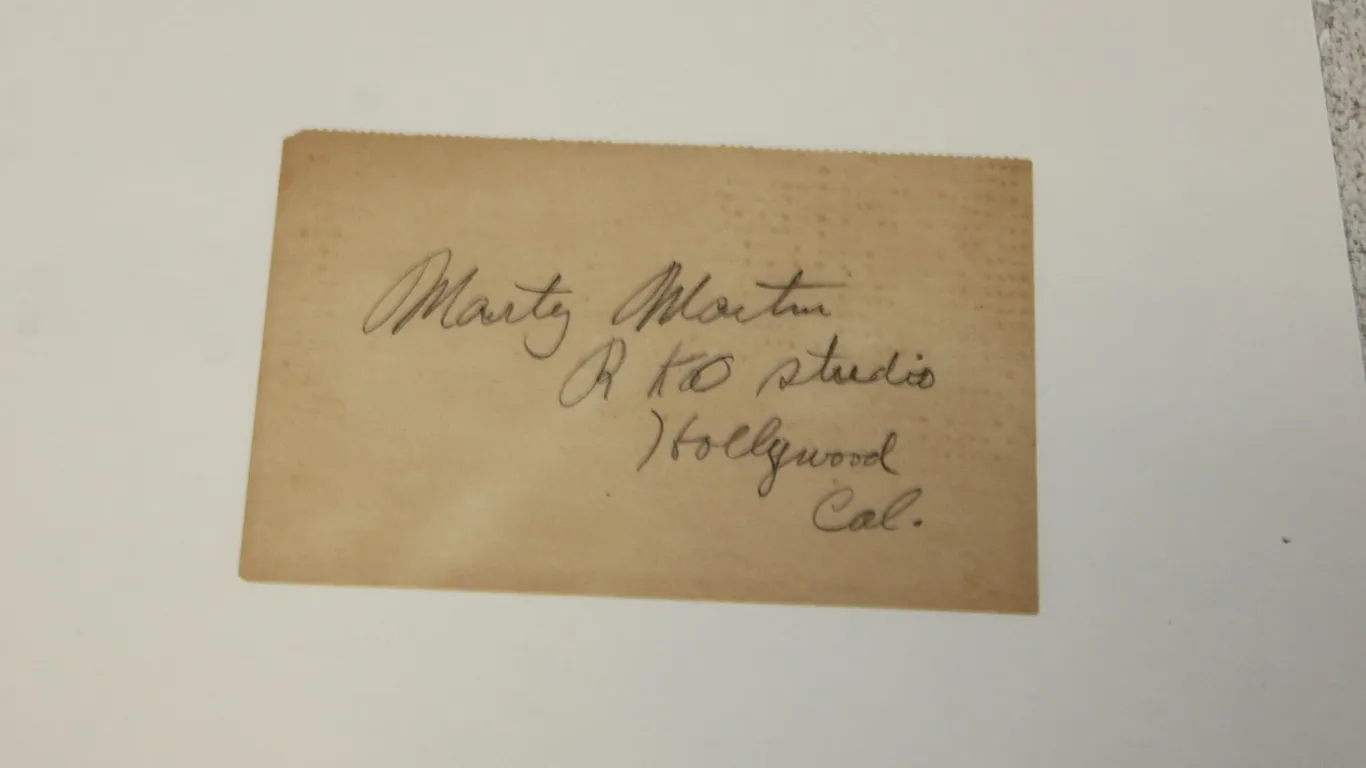 Marty Martin
RKO studio
Hollywood
Cal.